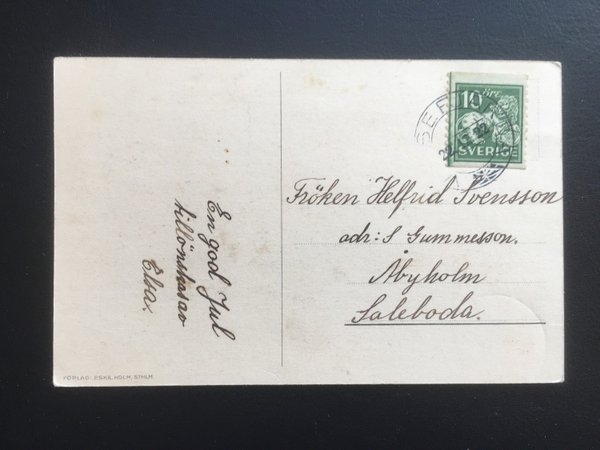 En god Jul
tillönskas av
Elsa.
10 öre
SVERIGE
Fröken Helfrid Svensson
adr: S Gummesson.
Åbyholm
Saleboda.
FÖRLAG: ESKIL HOLM, STHLM